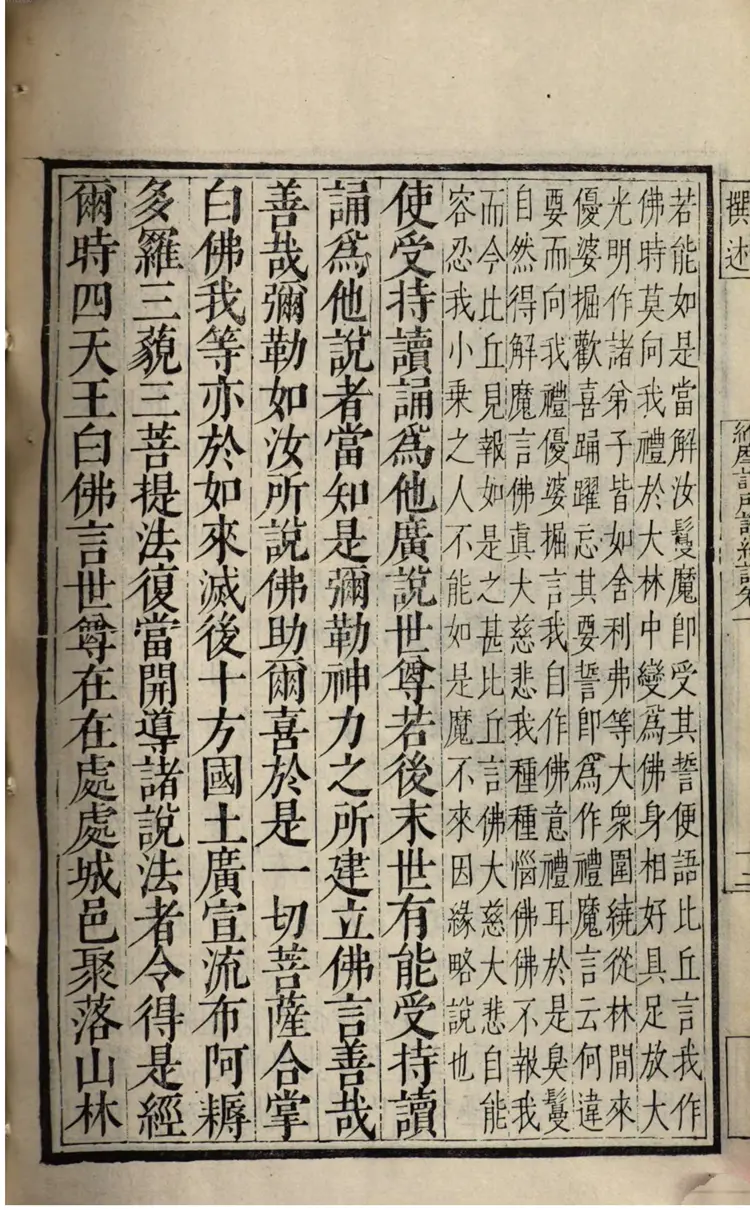 撰述
若能如是當解汝鬘魔即受其誓便語比丘言我作
佛時莫向我禮於大林中變爲佛身相好具足放大
光明作諸弟子皆如舍利弗等大衆圍繞從林間來
優婆掘歡喜踊躍忘其要誓即爲作禮魔言云何違
要而向我禮優婆掘言我自作佛意禮耳於是臭鬘
自然得解魔言佛眞大慈悲我種種惱佛佛不報我
而今比丘見報如是之甚比丘言佛大慈大悲自能
容忍我小乗之人不能如是魔不來因緣略說也
使受持讀誦爲他廣說世尊若後末世有能受持讀
誦爲他說者當知是彌勒神力之所建立佛言善哉
善哉彌勒如汝所說佛助爾喜於是一切菩薩合掌
白佛我等亦於如來滅後十方國土廣宣流布阿耨
多羅三藐三菩提法復當開導諸說法者令得是經
爾時四天王白佛言世尊在在處處城邑聚落山林